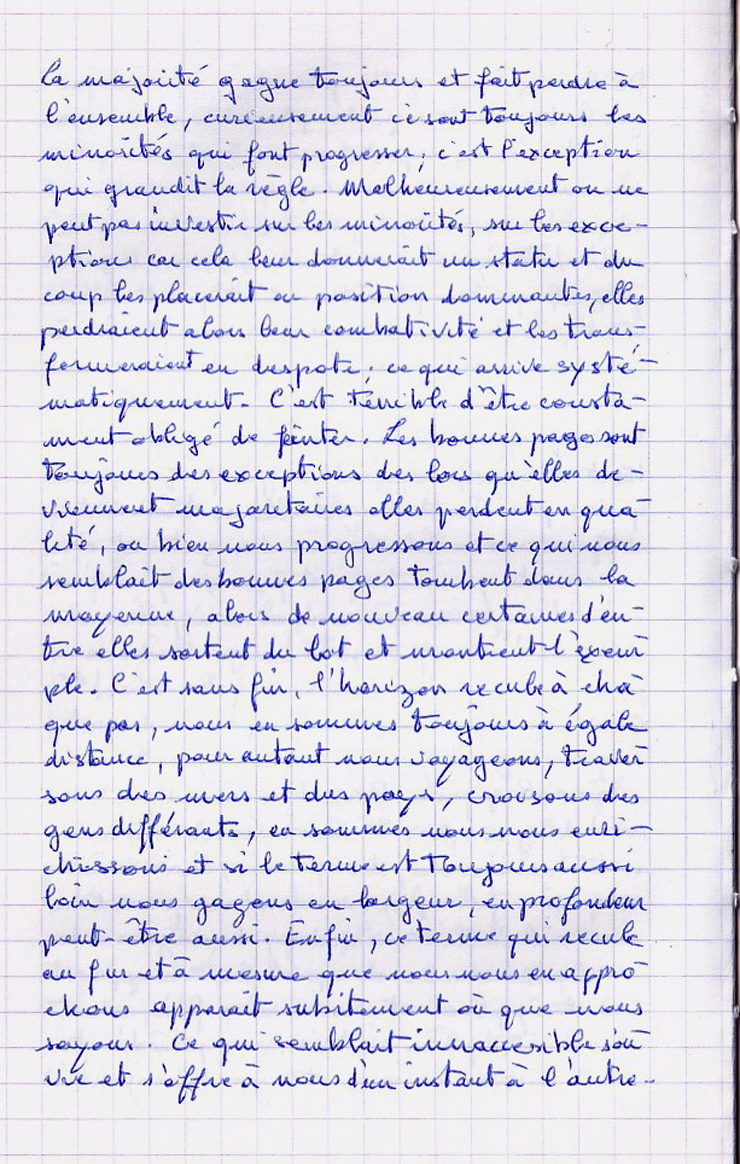 La majorité gagne toujours et fait perdre à
l'ensemble, curieusement ce sont toujours les
minorités qui font progresser, c'est l'exception
qui grandit la règle. Malheureusement on ne
peut pas investir sur les minorités, sur les exce-
ptions car cela leur donnerait un statu et du
coup les placerait en position dominantes, elles
perdraient alors leur combativité et les trans-
formeraient en despote, ce qui arrive systé-
matiquement. C'est terrible d'être consta-
ment obligé de feinter. Les bonnes pages sont
toujours des exceptions des lors qu'elles de-
viennent majoritaires elles perdent en qua-
lité, ou bien nous progressons et ce qui nous
semblait des bonnes pages tombent dans la
moyenne, alors de nouveau certaines d'en-
tre elles sortent du lot et montrent l'exem-
ple. C'est sans fin, l'horizon recule à cha-
que pas, nous en sommes toujours à égale
distance, pour autant nous voyageons, traver-
sons des mers et des pays, croisons des
gens différents, en sommes nous nous enri-
chissons et si le terme est toujours aussi
loin nous gagons en largeur, en profondeur
peut-être aussi. Enfin, ce terme qui recule
au fur et à mesure que nous nous en appro-
chons apparait subitement où que nous
soyons. Ce qui semblait innaccesible s'ou-
vre et s'offre à nous d'un instant à l'autre..